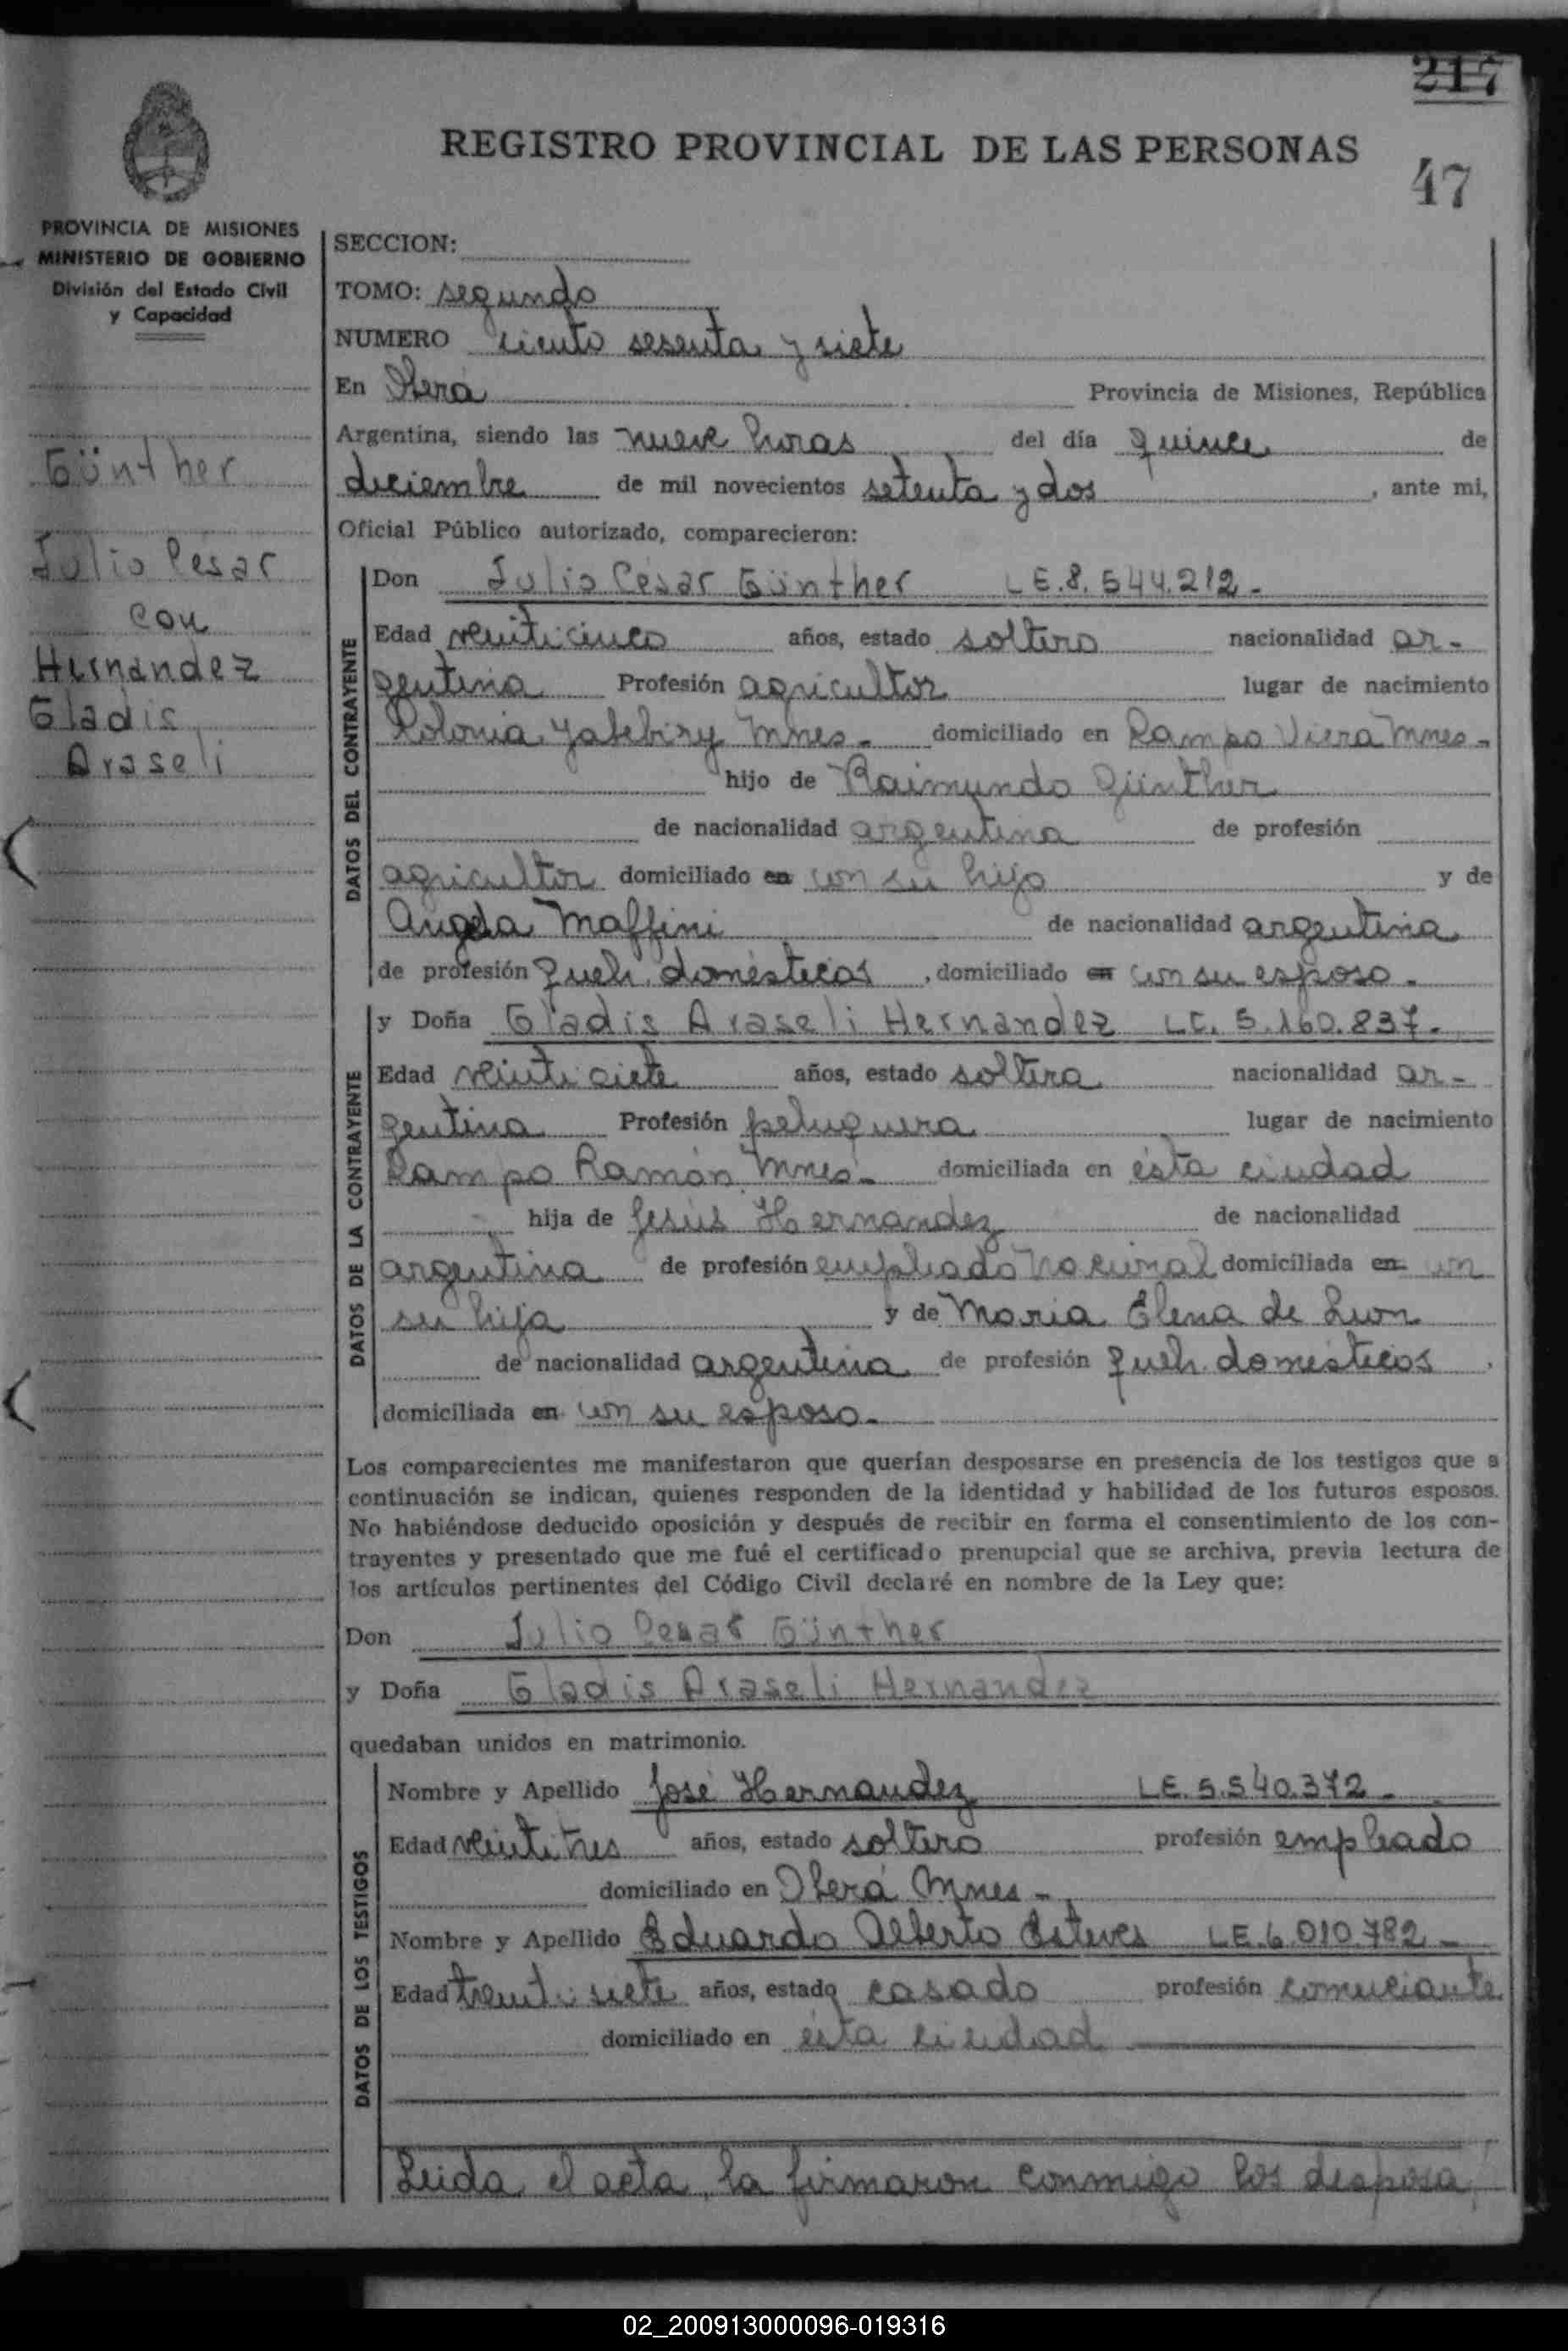 217
REGISTRO PROVINCIAL DE LAS PERSONAS
47
PROVINCIA DE MISIONES
MINISTERIO DE GOBIERNO
División del Estado Civil
y Capacidad
Günther
Julio Cesar
con
Hernandez
Gladis
Araseli
SECCION:
TOMO: segundo
NUMERO ciento sesenta y siete
En Oberá Provincia de Misiones, República
Argentina, siendo las nueve horas del día quince de
diciembre de mil novecientos setenta y dos, ante mi,
Oficial Público autorizado, comparecieron:
DATOS DEL CONTRAYENTE
Don Julio Cesar Günther LE.8.544.212-
Edad veinticinco años, estado soltero nacionalidad ar-
gentina Profesión agricultor lugar de nacimiento
Colonia Yabebiry Mnes- domiciliado en Campo Viera Mnes-
hijo de Raimundo Günther
de nacionalidad argentina de profesión
agricultor domiciliado en con su hijo y de
Angela Maffini de nacionalidad argentina
de profesión queh. domésticos, domiciliado en con su esposo.
DATOS DE LA CONTRAYENTE
y Doña Gladis Araseli Hernandez LC. 5.160.837.
Edad veintisiete años, estado soltera nacionalidad ar-
gentina Profesión peluquera lugar de nacimiento
Campo Ramón Mnes- domiciliada en ésta ciudad
hija de Jesús Hernandez de nacionalidad
argentina de profesión empleado nacional domiciliada en con
su hija y de Maria Elena de Leon
de nacionalidad argentina de profesión queh. domésticos,
domiciliada en con su esposo-
Los comparecientes me manifestaron que querían desposarse en presencia de los testigos que a
continuación se indican, quienes responden de la identidad y habilidad de los futuros esposos.
No habiéndose deducido oposición y después de recibir en forma el consentimiento de los con-
trayentes y presentado que me fué el certificado prenupcial que se archiva, previa lectura de
los artículos pertinentes del Código Civil declaré en nombre de la Ley que:
Don Julio Cesar Günther
y Doña Gladis Araseli Hernandez
quedaban unidos en matrimonio.
DATOS DE LOS TESTIGOS
Nombre y Apellido José Hernandez LE.5.540.372-
Edad veintitres años, estado soltero profesión empleado
domiciliado en Oberá Mnes-
Nombre y Apellido Eduardo Alberto Esteves LE.6.010.782-
Edad treintisiete años, estado casado profesión comerciante
domiciliado en esta ciudad
Leida el acta, la firmaron conmigo los desposa
02_200913000096-019316